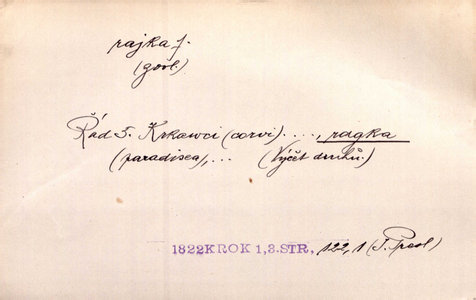 rajka f.
(zool.)
Řád 5. Krkawci (corvi)...., ragka
(paradisea),... (Výčet druhů.)
1822KROK 1,3.STR, 122,1 (J. Presl)